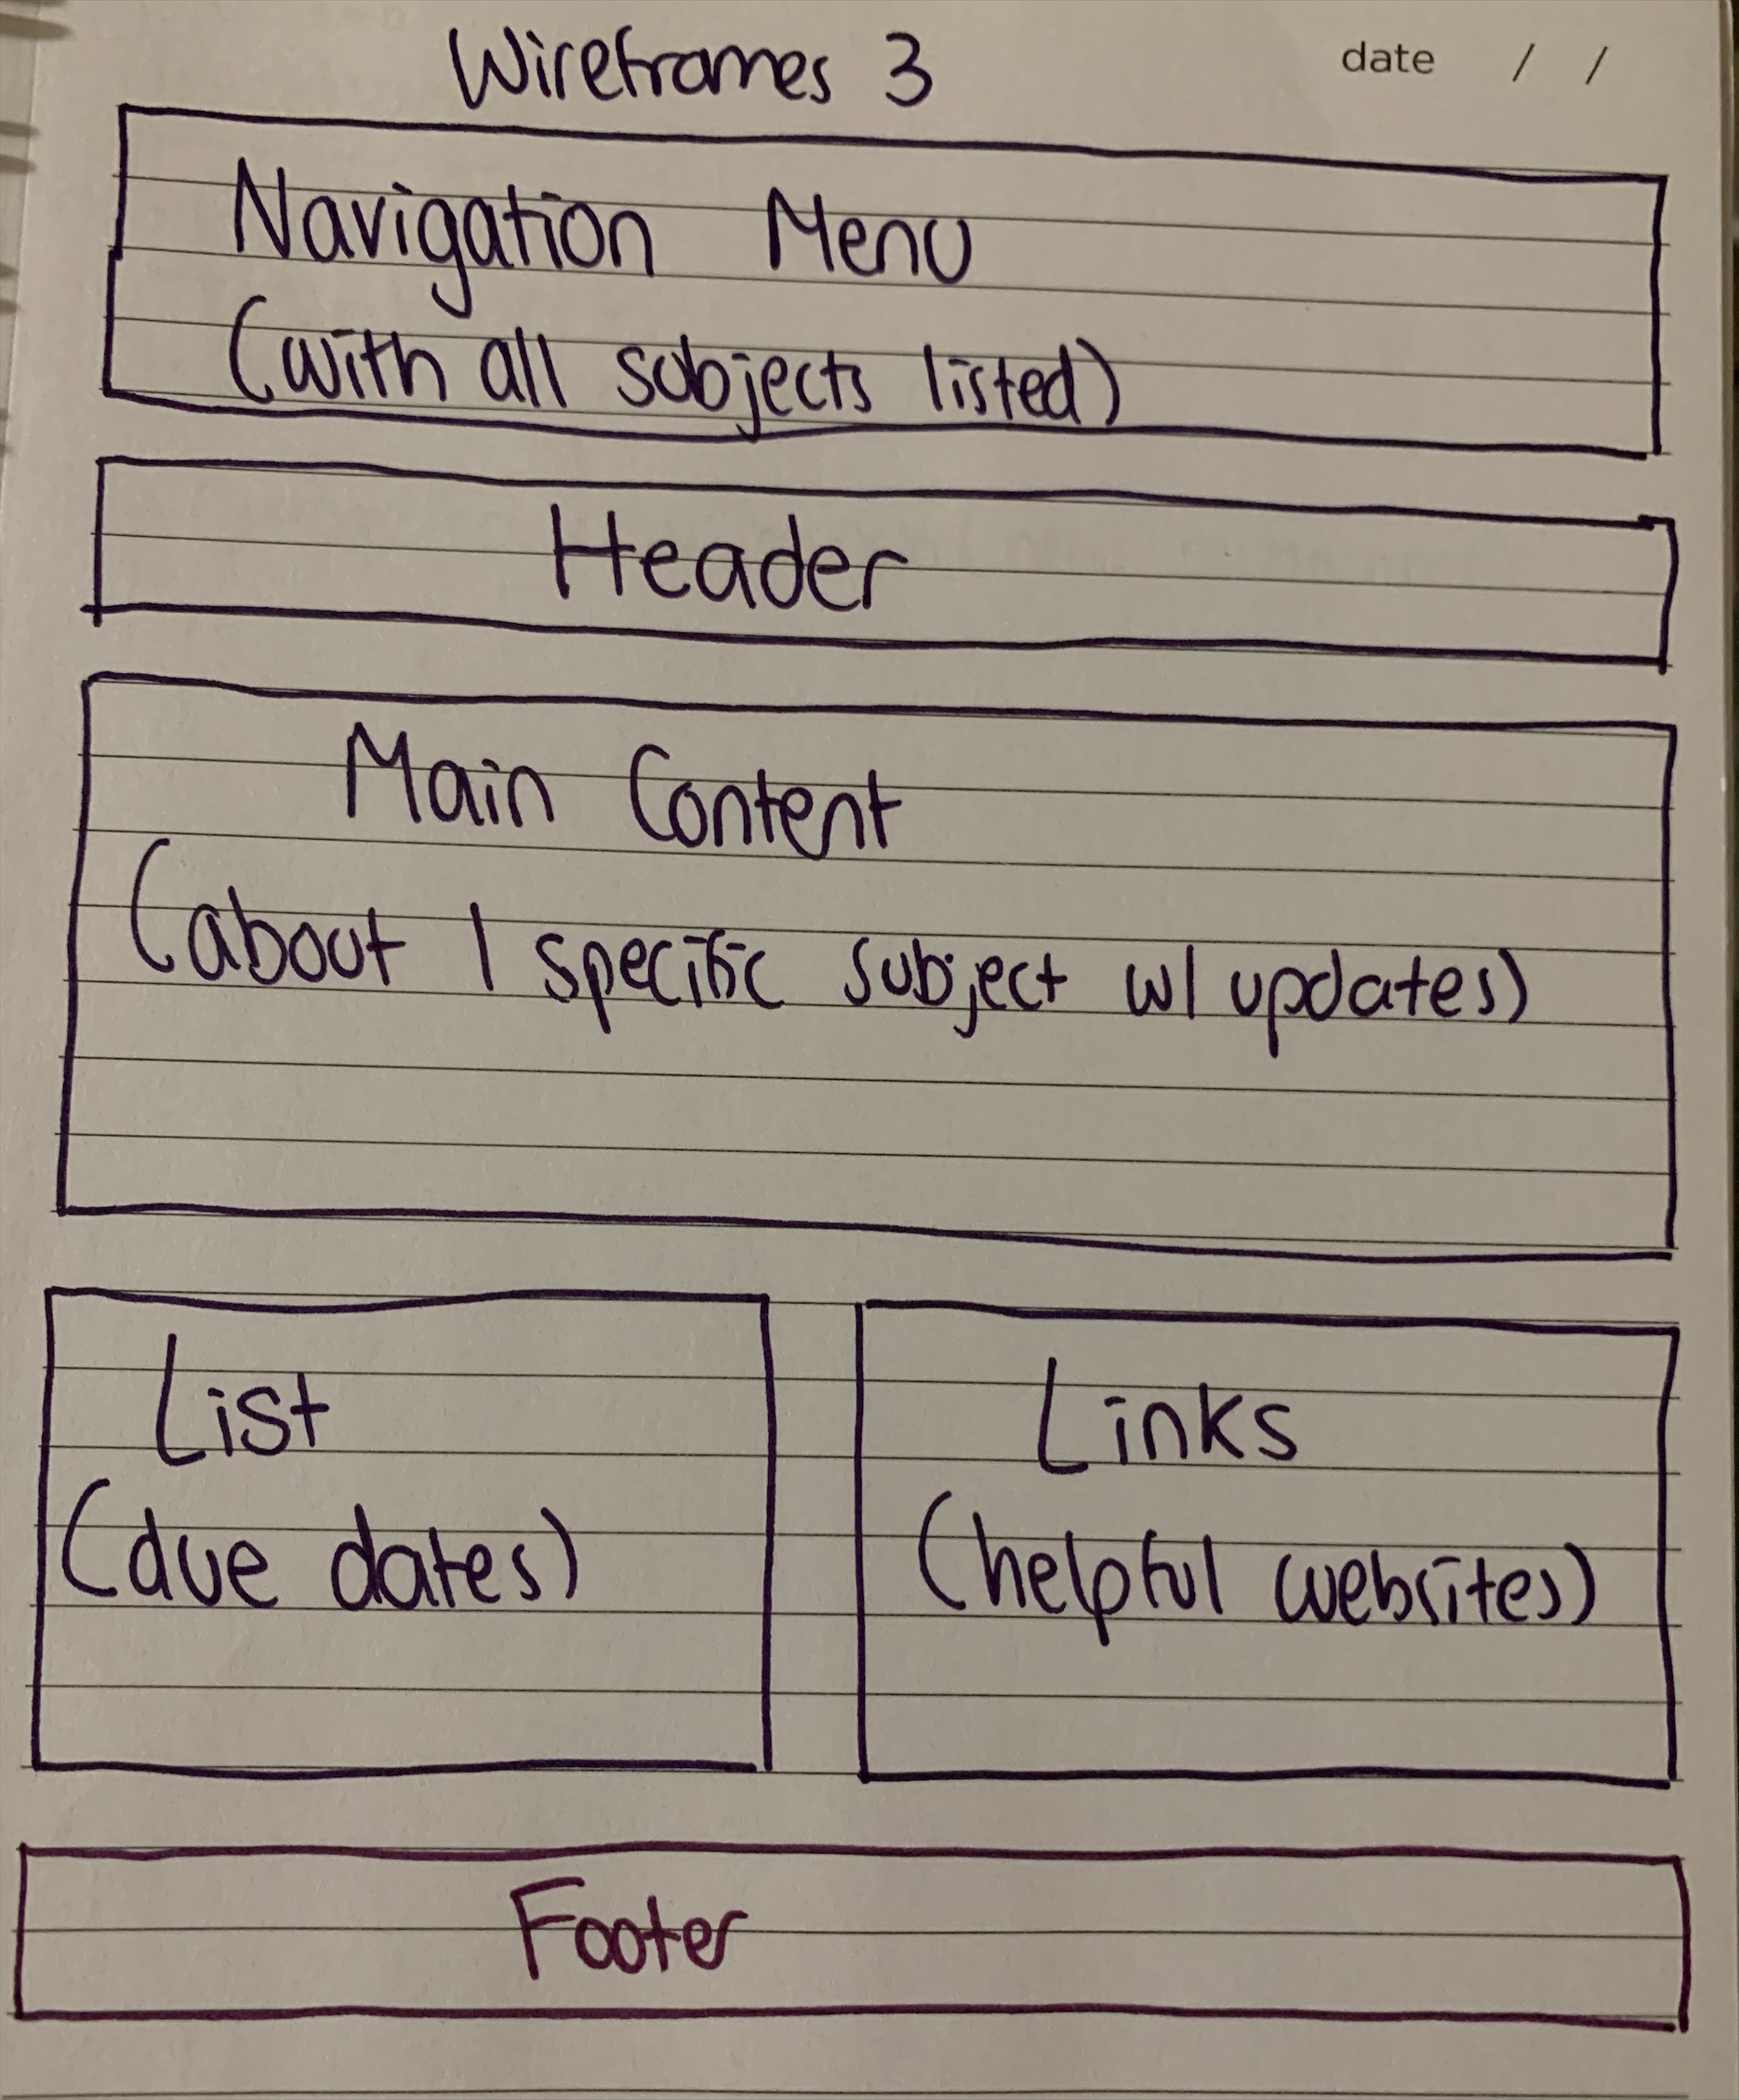 Wireframes 3
date / /
Navigation Menu
(with all subjects listed)
Header
Main Content
(about 1 specific subject w/ updates)
List
(due dates)
Links
(helpful websites)
Footer